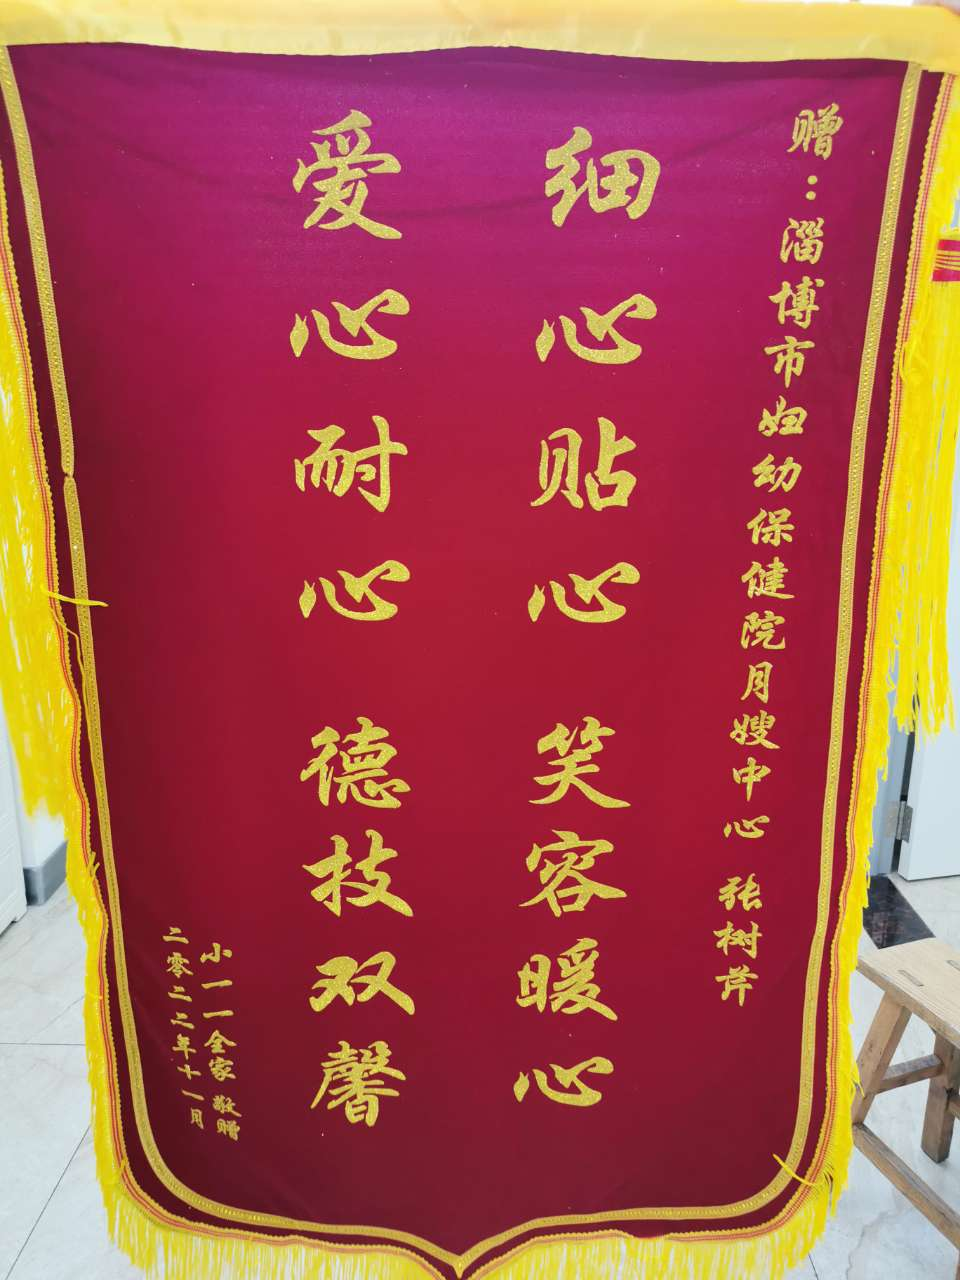 赠：淄博市妇幼保健院月嫂中心 张树芹
细心贴心 笑容暖心
爱心耐心 德技双馨
小一一全家 敬赠
二零二二年十一月